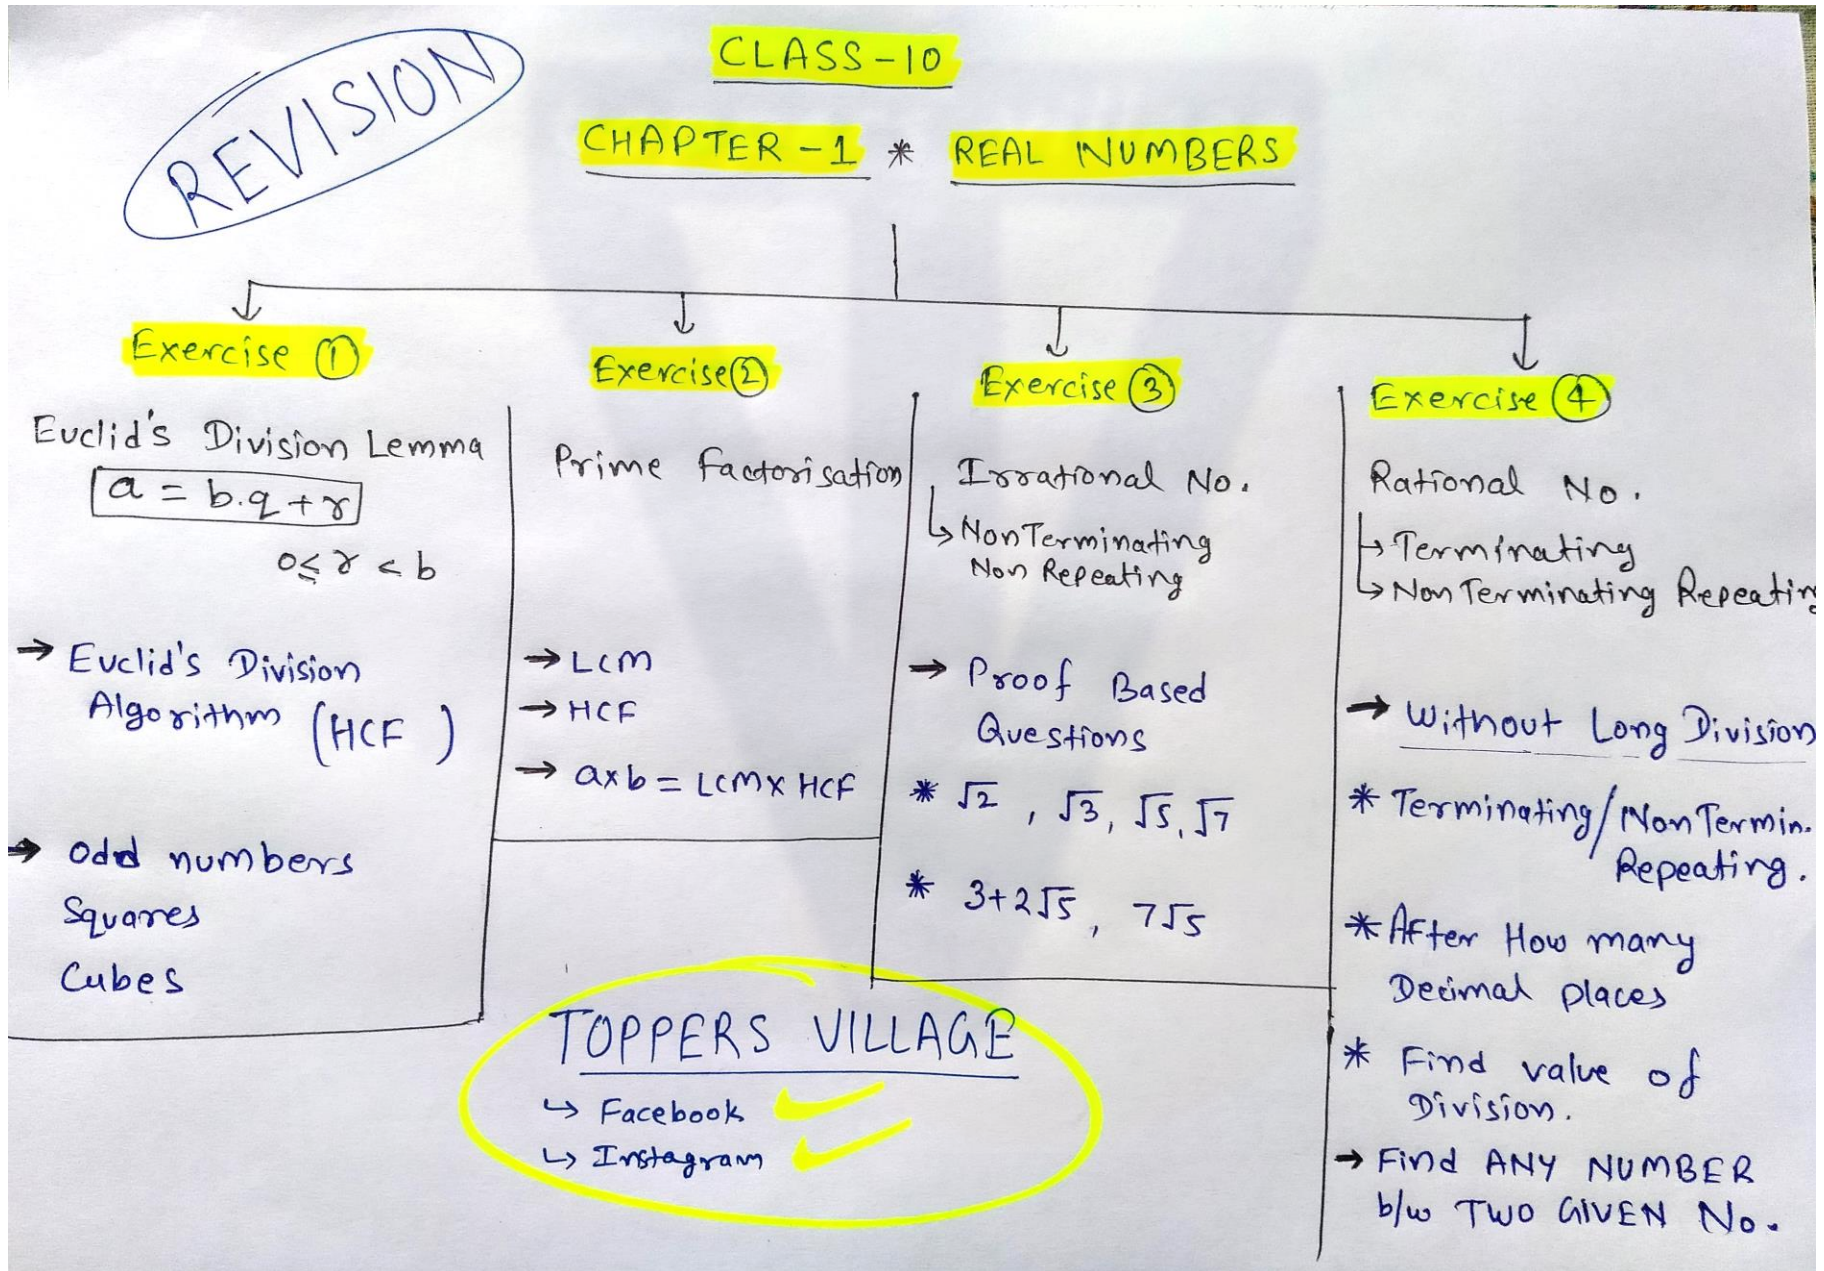 REVISION
CLASS-10
CHAPTER-1 * REAL NUMBERS
Exercise ①
Euclid's Division Lemma
a = b.q + r
0≤ r < b
→ Euclid's Division
Algorithm (HCF)
→ Odd numbers
Squares
Cubes
Exercise ②
Prime Factorisation
→ LCM
→ HCF
→ a×b = LCM× HCF
Exercise ③
Irrational No.
↳ Non Terminating
Non Repeating
→ Proof Based
Questions
* √2, √3, √5, √7
* 3+2√5, 7√5
Exercise ④
Rational No.
↳ Terminating
↳ Non Terminating Repeating
→ Without Long Division
* Terminating/Non Termin.
Repeating.
* After How many
Decimal places
* Find value of
Division.
→ Find ANY NUMBER
b/w TWO GIVEN No.
TOPPERS VILLAGE
↳ Facebook
↳ Instagram